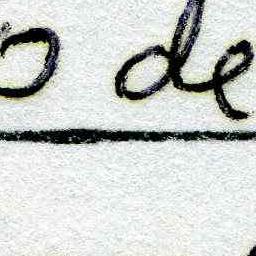 o de